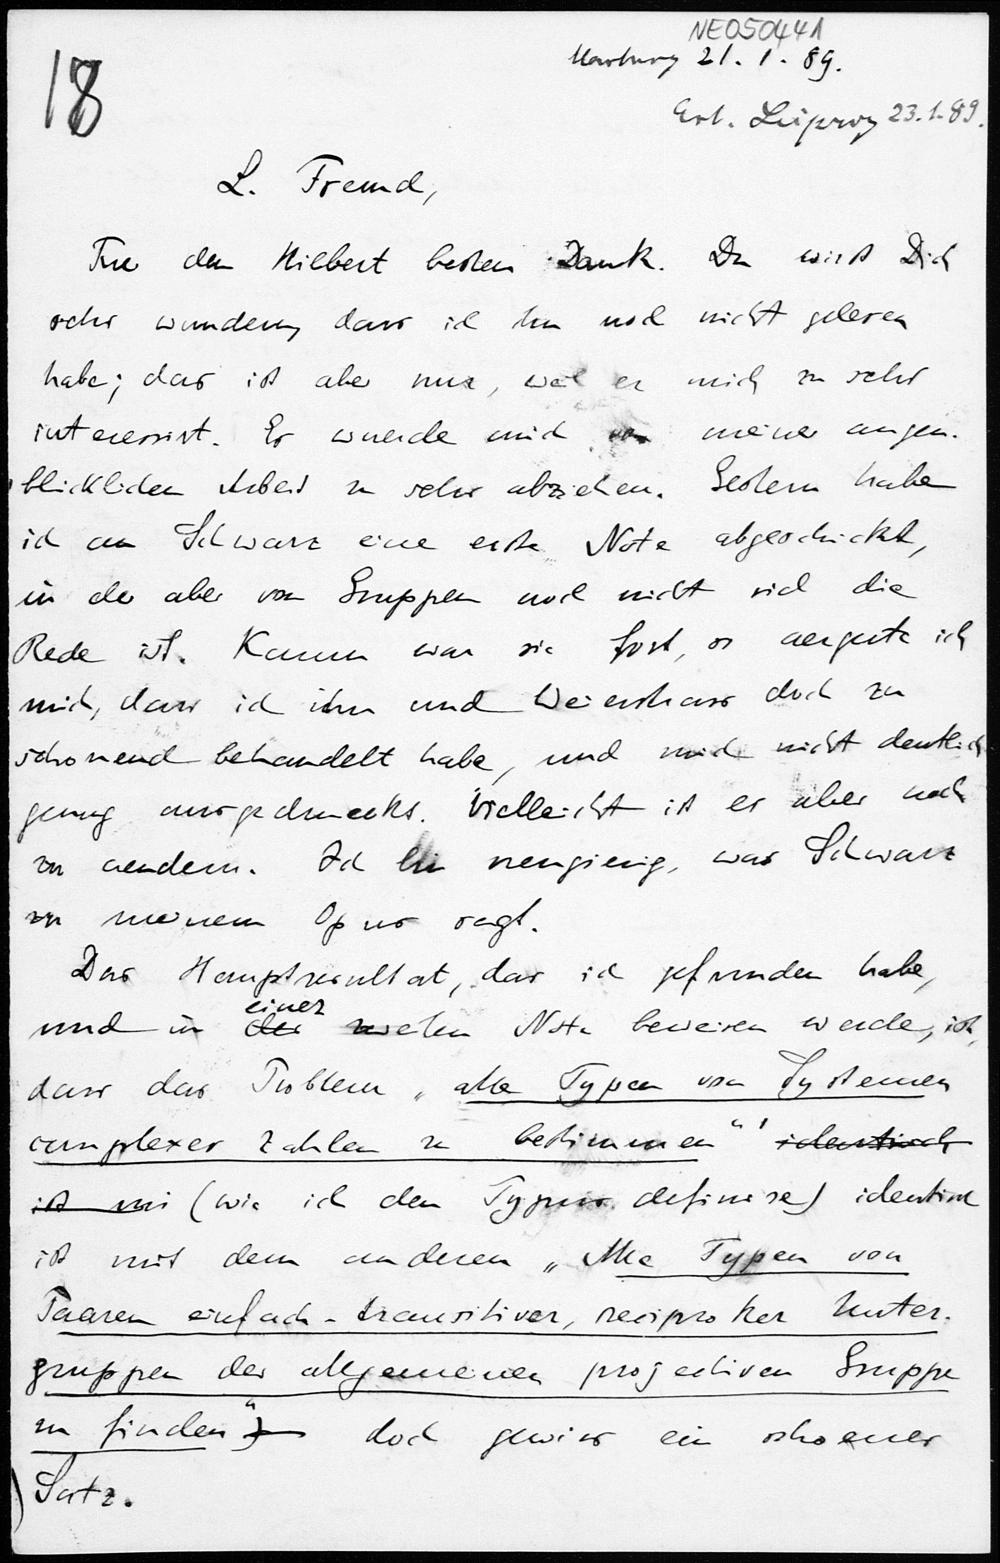 NE05044A
18
Marburg 21. 1. 89.
Erh. Leipzig 23.1.89.
L. Freund,
Fuer den Hilbert besten Dank. Du wirst Dich
sehr wundern, dass ich ihn noch nicht gelesen
habe; das ist aber nur, weil er mich zu sehr
interessirt. Er wuerde mich von meiner augen-
blicklichen Arbeit zu sehr abziehen. Gestern habe
ich an Schwarz eine erste Note abgeschickt,
in der aber von Gruppen noch nicht viel die
Rede ist. Kaum war sie fort, so aergerte ich
mich, dass ich ihn und Weierstrass doch zu
schonend behandelt habe, und mich nicht deutlich
genug ausgedrueckt. Vielleicht ist es aber noch
zu aendern. Ich bin neugierig, was Schwarz
zu meinem Opus sagt.
Das Hauptresultat, das ich gefunden habe,
einer
und in der zweiten Note beweisen werde, ist,
dass das Problem „alle Typen von Systemen
complexer Zahlen zu bestimmen“ identisch
ist mi (wie ich den Typus definire) identisch
ist mit dem anderen „Alle Typen von
Paaren einfach-transitiver, reciproker Unter-
gruppen der allgemeinen projectiven Gruppe
zu finden“ doch gewiss ein schoener
Satz.